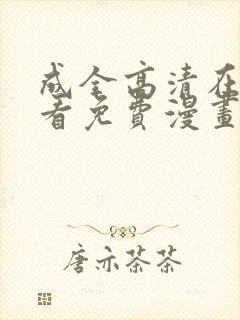 成全高清在
看免费漫畫
唐亦茶茶